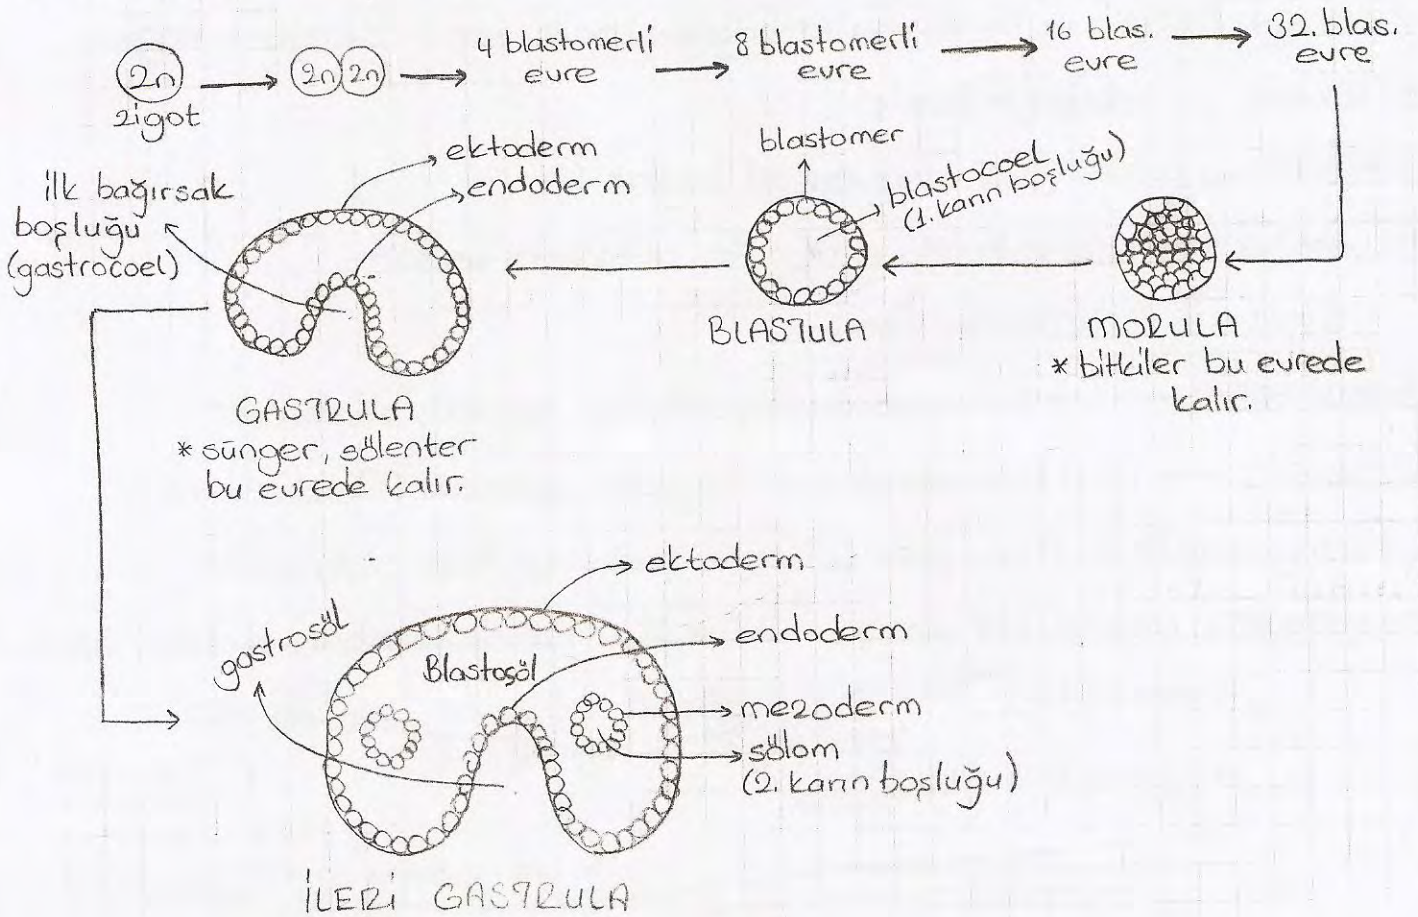 2n
zigot
2n 2n
4 blastomerli
evre
8 blastomerli
evre
16 blas.
evre
32. blas.
evre
MORULA
* bitkiler bu evrede
kalır.
blastomer
blastocoel
(1. karın boşluğu)
BLASTULA
ektoderm
endoderm
ilk bağırsak
boşluğu
(gastrocoel)
GASTRULA
* sünger, sölenter
bu evrede kalır.
ektoderm
gastrosöl
Blastoşöl
endoderm
mezoderm
sölom
(2. karın boşluğu)
İLERİ GASTRULA